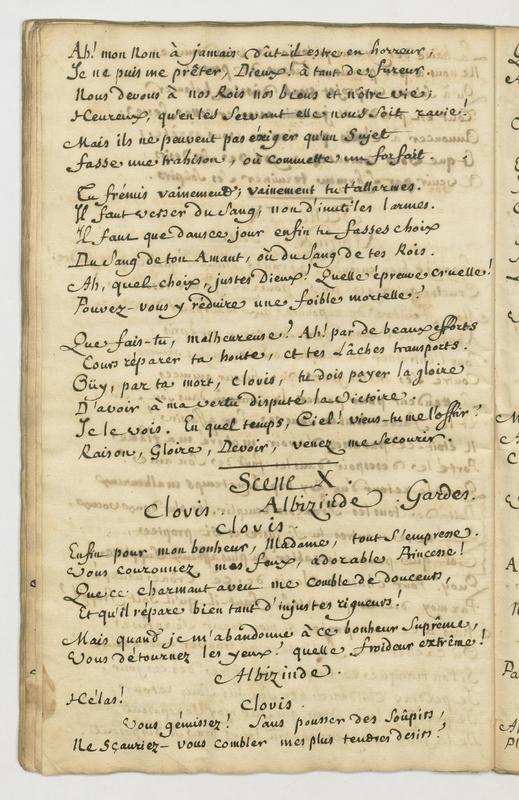 Ah! mon Nom à jamais dût-il estre en horreur,
Je ne puis me prêter, Dieux! à tant de fureur.
Nous devons à nos Rois nos biens et nôtre vie;
Heureux, qu'en les servant elle nous soit ravie!
Mais ils ne peuvent pas exiger qu'un Sujet
fasse une trahison, où commette un forfait.
Tu frémis vainement; vainement tu t'allarmes.
Il faut verser du Sang, non d'inutiles larmes.
Il faut que dans ce jour enfin tu fasses choix
Du Sang de ton Amant, où du Sang de tes Rois.
Ah, quel choix, justes Dieux! Quelle épreuve cruelle!
Pouvez-vous y réduire une foible mortelle?
Que fais-tu, malheureuse? Ah! par de beaux efforts
Cours réparer ta honte, et tes Lâches transports.
Oüy, par ta mort, Clovis, tu dois payer la gloire
D'avoir à ma vertu disputé la Victoire.
Je le vois. En quel temps, Ciel! viens-tu me l'offrir?
Raison, Gloire, Devoir, venez me secourir.
Scene X.
Clovis. Albizinde. Gardes.
Clovis.
Enfin pour mon bonheur, Madame, tout s'empresse.
Vous couronnez mes feux, adorable Princesse!
Que ce charmant aveu me comble de douceurs,
Et qu'il répare bien tant d'injustes rigueurs!
Mais quand je m'abandonne à ce bonheur Suprême,
Vous détournez les yeux! quelle froideur extrême!
Albizinde.
Hélas!
Clovis.
Vous gémissez! Sans pousser des Soûpirs,
Ne Sçauriez-vous combler mes plus tendres desirs?